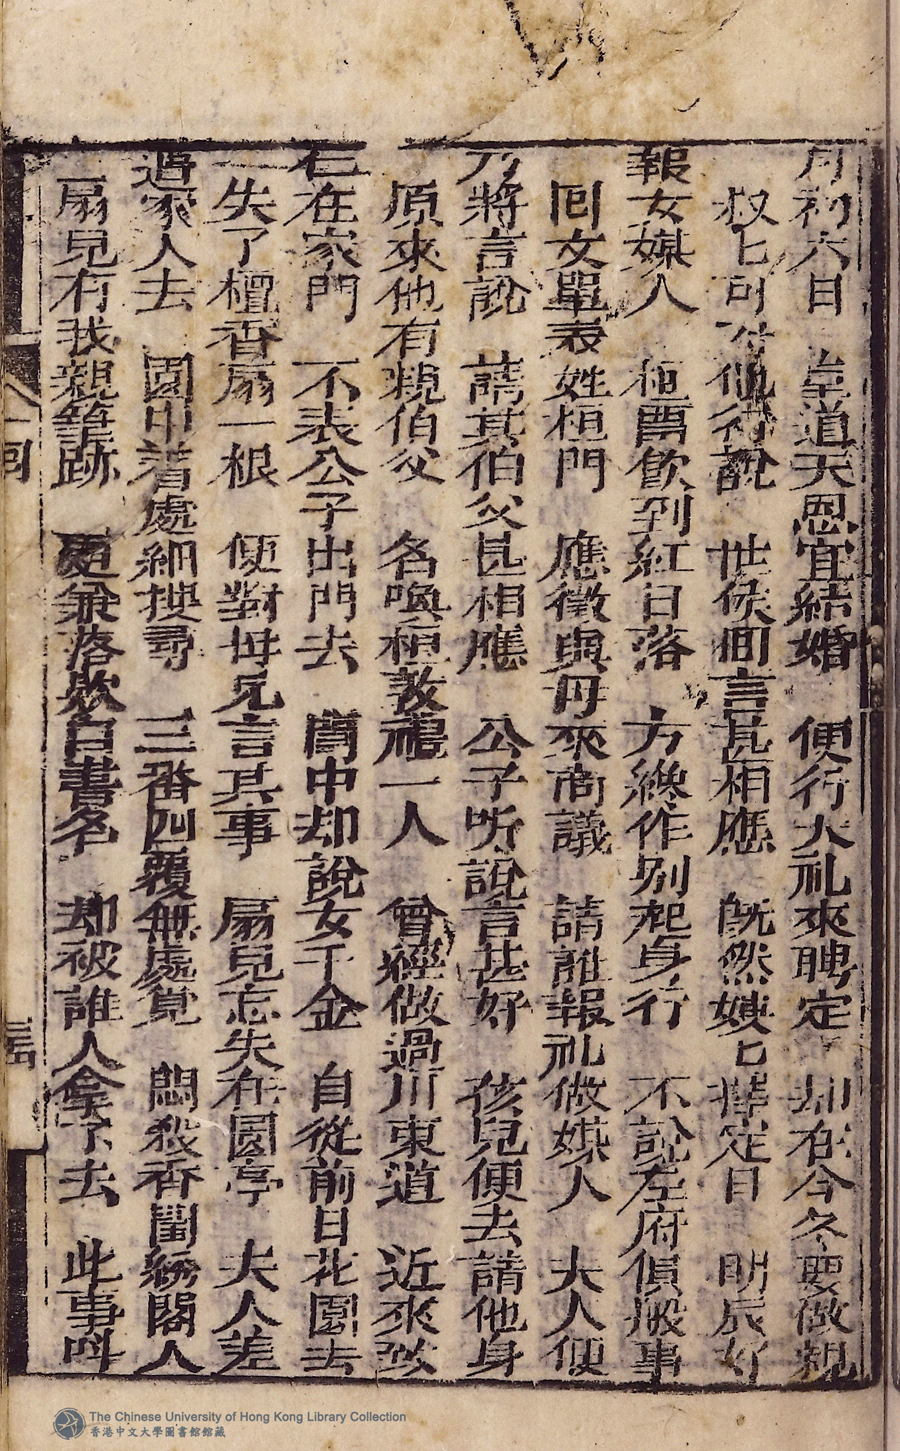 月初六日　皇道天恩宜結婚　便行大礼來聘定　却在今冬要做親
叔匕可对他行說　世侯囬言甚相應　旣然嫂匕擇定日　明辰好
報女媒人　桓爵飲到紅日落　方纔作別起身行　不說左府傎般事
囘文單表姓桓門　應徵與母來商議　請誰報礼做媒人　夫人便
乃將言說　請其伯父甚相應　公子听說言甚好　孩兒便去請他身
原來他有親伯父　名喚桓敦禮一人　曾經做過川東道　近來致
仕在家門　不表公子出門去　閨中却說女千金　自從前日花園去
一失了檀香扇一根　便對母兄言其事　扇兒忘失在園亭　夫人差
過家人去　園中着處細搜尋　三番四覆無處覓　悶殺香閨綉閣人
扇兒有我親筆跡　更兼落欵自書名　却被誰人拿了去　此事呌
回
The Chinese University of Hong Kong Library Collection
香港中文大學圖書館館藏